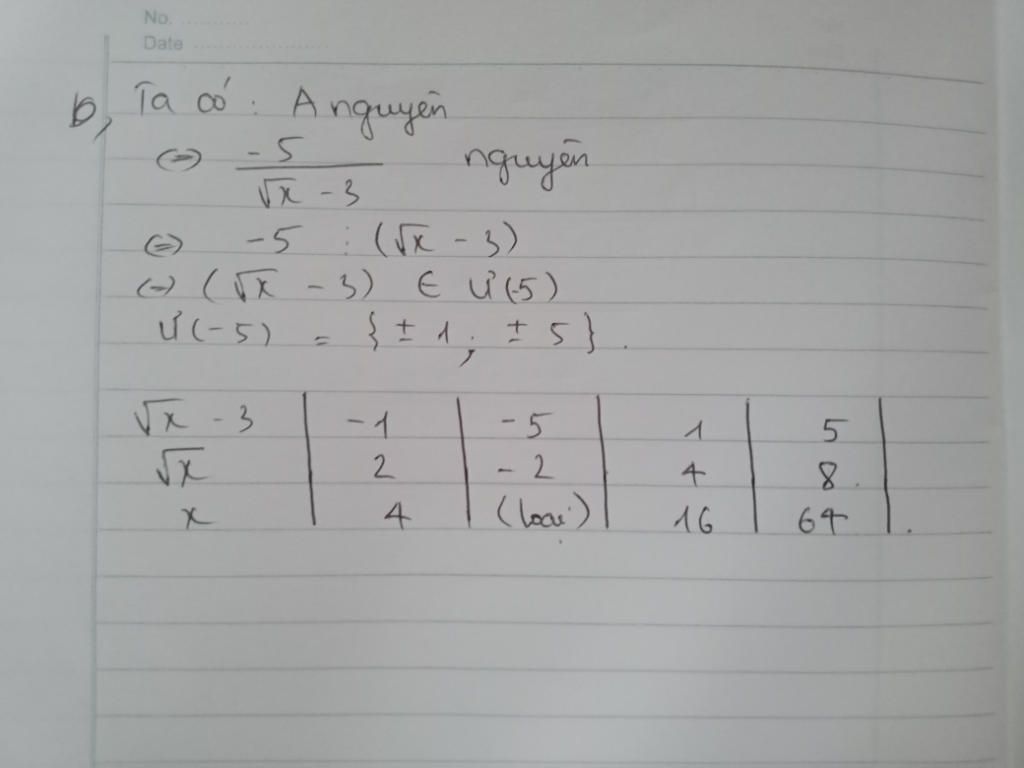 No. ............
Date ........................
b, Ta có : A nguyên
⇔ -5/(√x - 3) nguyên
⇔ -5 ⋮ (√x - 3)
⇔ (√x - 3) ∈ Ư(-5)
Ư(-5) = {± 1 ; ± 5}.
√x - 3 | -1 | -5 | 1 | 5 |
√x | 2 | -2 | 4 | 8 |
x | 4 | (loại) | 16 | 64 | .